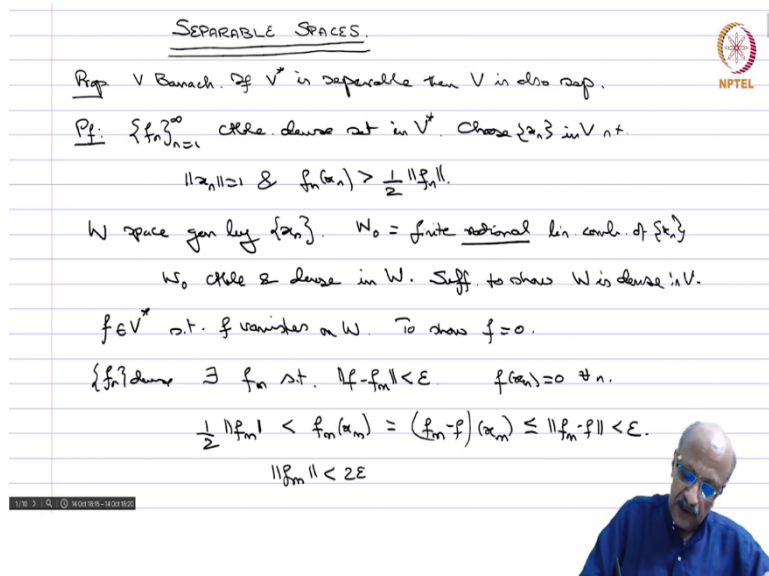 SEPARABLE SPACES.
NPTEL
Prop V Banach. If V* is separable then V is also sep.
Pf: {fₙ}ₙ₌₁^∞ ctble. dense set in V*. Choose {xₙ} in V s.t.
||xₙ||=1 & fₙ(xₙ) > 1/2 ||fₙ||.
W space gen by {xₙ}. W₀ = finite rational lin. comb. of {xₙ}
W₀ ctble & dense in W. Suff. to show W is dense in V.
f ∈ V* s.t. f vanishes on W. To show f = 0.
{fₙ} dense ∃ fₘ s.t. ||f-fₘ|| < ε. f(xₙ)=0 ∀ n.
1/2 ||fₘ|| < fₘ(xₘ) = (fₘ-f)(xₘ) ≤ ||fₘ-f|| < ε.
||fₘ|| < 2ε
1/10